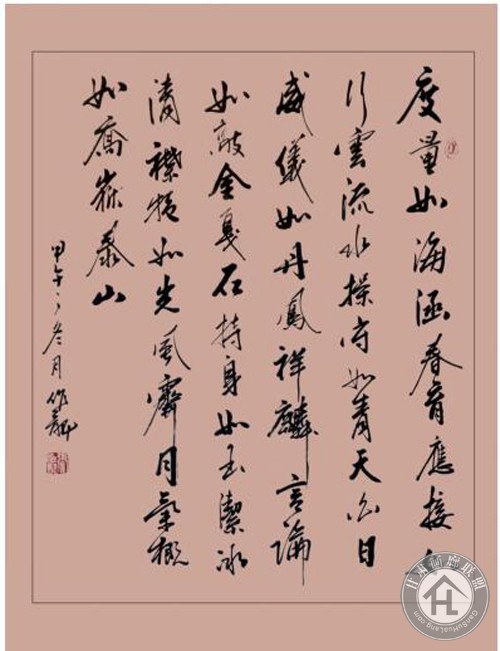 度量如海涵春育應接如
行雲流水操守如青天白日
威儀如丹鳳祥麟言論
如敲金戛石持身如玉潔冰
清襟抱如光風霽月氣概
如喬嶽泰山
甲午
甘肅畫廊聯盟
GanSuHuaLang.com